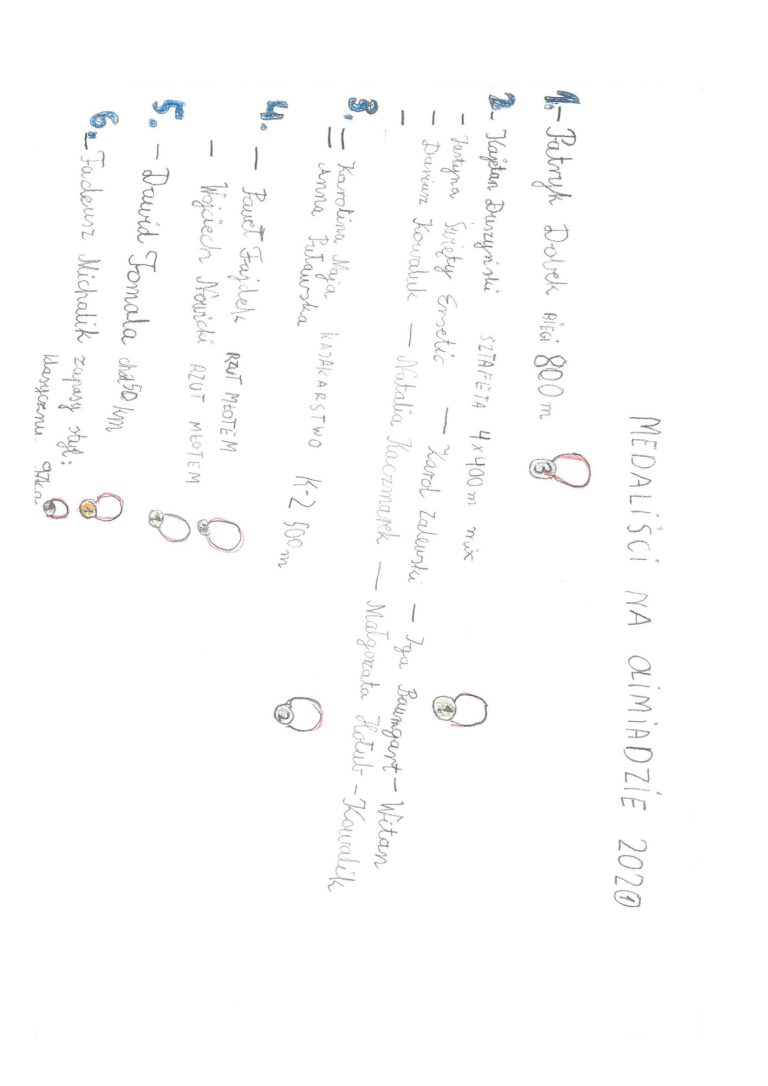 MEDALIŚCI NA OLIMIADZIE 2021
1. - Patryk Dobek BIEGI 800 m 3
2. - Kajetan Duszyński SZTAFETA 4x400 m mix 1
- Justyna Święty Ersetic - Karol Zalewski - Iga Baumgart - Witan
- Dariusz Kowaluk - Natalia Kaczmarek - Małgorzata Hołub - Kowalik
-
3. - Karolina Naja
- Anna Puławska KAJAKARSTWO K-2 500 m 2
4. - Paweł Fajdek RZUT MŁOTEM
- Wojciech Nowicki RZUT MŁOTEM
5. - Dawid Tomala chód 50 km 1
6. - Tadeusz Michalik zapasy styl:
klasyczny